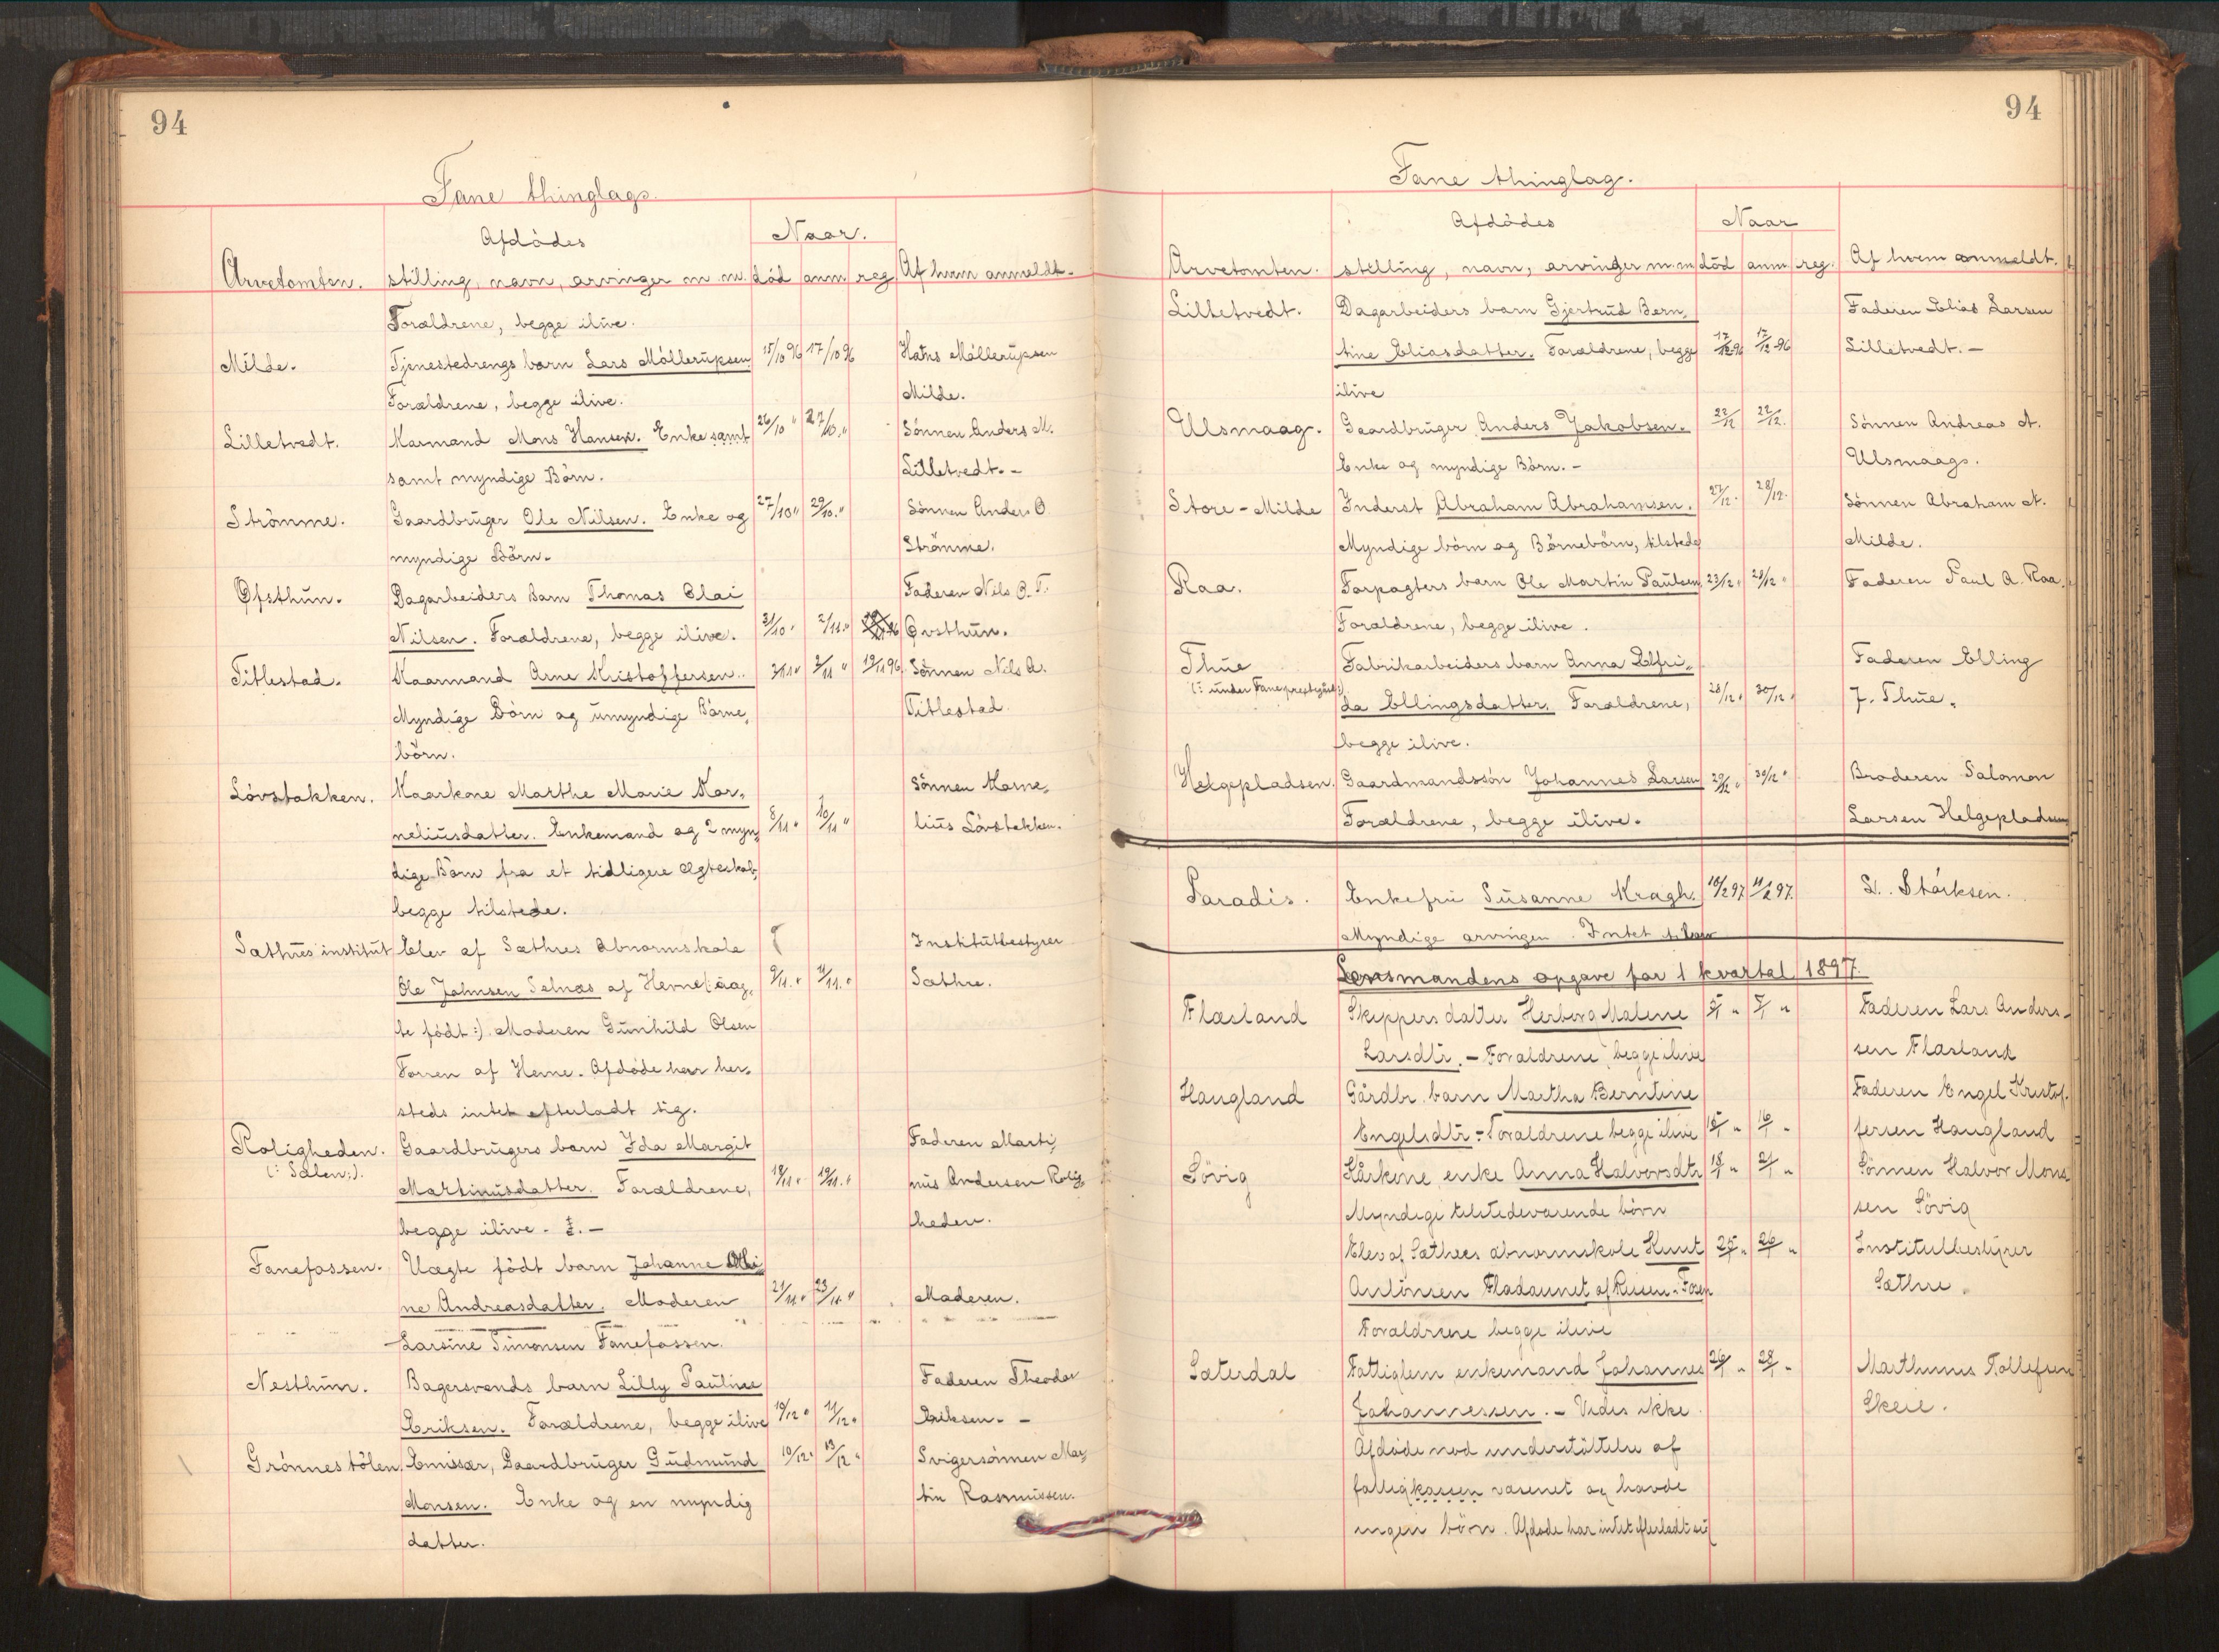 94
Fane thinglags.
Afdödes
Naar.
Arvetomten. stilling, navn, arvinger m.m. död anm. reg. Af hvem anmeldt.
Forældrene, begge ilive.
Milde. Tjenestedrengs barn Lars Möllerupsen 15/10 96 17/10 96 Hans Möllerupsen
Forældrene, begge ilive. Milde.
Lilletvedt. Karmand Mons Hansen. Enke samt 26/10 " 27/10 " Sönnen Anders M.
samt myndige Börn. Lilletvedt. -
Strömme. Gaardbruger Ole Nilsen. Enke og 27/10 " 29/10 " Sönnen Anders O.
myndige Börn. Strömme.
Øfsthun. Dagarbeiders Barn Thomas Olai Faderen Nils O. T.
Nilsen. Forældrene, begge ilive. 31/10 " 2/11 " Øvsthun.
Titlestad. Kaarmand Arne Kristoffersen. 2/11 " 3/11 " 19/11 96 Sönnen Nils A.
Myndige Börn og umyndige Börne- Titlestad.
börn.
Lövstakken. Kaarkone Marthe Marie Kor- Sönnen Korne-
neliusdatter. Enkemand og 2 myn- 8/11 " 10/11 " lius Lövstakken.
dige Börn fra et tidligere Ægteskab,
begge tilstede.
Sæthres institut Elev af Sæthres Abnormskole Institutbestyrer
Ole Johnsen Selnæs af Hevne (: uæg- 9/11 " 11/11 " Sæthre.
te födt :). Moderen Gunhild Olsen
Forren af Hevne. Afdöde har her-
steds intet efterladt sig.
Roligheden. Gaardbrugers barn Ida Margit Faderen Marti-
(: Sælen :). Martinusdatter. Forældrene, 18/11 " 19/11 " nus Andersen Rolig-
begge ilive. - heden.
Fanefossen. Uægte födt barn Johanne
ne Andreasdatter. Moderen 21/11 " 23/11 " Moderen.
Larsine Simonsen Fanefossen.
Nesthun. Bagersvends barn Lilly Pauline Faderen Theodor
Eriksen. Forældrene, begge ilive 10/12 " 11/12 " Eriksen. -
Grönnestölen. Emissær, Gaardbruger Gudmund 10/12 " 13/12 " Svigersönnen Mar-
Monsen. Enke og en myndig tin Rasmussen.
datter.
94
Fane thinglag.
Afdödes
Naar
Arvetomten. stilling, navn, arvinger m.m. död anm. reg. Af hvem anmeldt.
Lilletvedt. Dagarbeiders barn Gjertrud Bern- Faderen Elias Larsen
tine Eliasdatter. Forældrene, begge 17/12 96 17/12 96 Lilletvedt. -
ilive
Ulsmaag. Gaardbruger Anders Jakobsen. 22/12 22/12 Sönnen Andreas A.
Enke og myndige Börn. - Ulsmaag.
Store-Milde Inderst Abraham Abrahamsen. 27/12 28/12 Sönnen Abraham A.
Myndige börn og Börnebörn, tilstede Milde.
Raa. Forpagters barn Ole Martin Paulsen 23/12 " 28/12 " Faderen Paul A. Raa.
Forældrene, begge ilive.
Thue Fabrikarbeiders barn Anna Elfri- Faderen Elling
(: under Fane prestegård :) da Ellingsdatter. Forældrene, 28/12 " 30/12 " J. Thue.
begge ilive.
Helgepladsen. Gaardmandssön Johannes Larsen 29/12 " 30/12 " Broderen Salomon
Forældrene, begge ilive. Larsen Helgepladsen
Paradis. Enkefru Susanne Kragh. 10/2 97 11/2 97. L. Störksen.
Myndige arvinger. Intet
Lensmandens opgave for 1 kvartal 1897.
Flæsland Skippers datter Herborg Malene 2/1 " 5/1 " Faderen Lars Anders-
Larsdtr. - Forældrene begge ilive sen Flæsland
Haugland Gårdbr. barn Martha Berntine Faderen Engel Kristof-
Engelsdtr. - Forældrene begge ilive 15/1 " 16/1 " fersen Haugland
Sövig Kårkone, enke Anna Halvorsdtr 18/1 " 21/1 " Sönnen Halvor Mons-
Myndige tilstedeværende börn sen Sövig
Elev af Sæthres abnormskole Knut 25/1 " 26/1 " Institutbestyrer
Antonsen Fladaunet af Rissen. Sæthre.
Forældrene begge ilive
Sæterdal Fattiglem enkemand Johannes 26/1 " 28/1 " Marthinus Tollefsen
Johannessen. - Vides ikke Skeie.
Afdöde nöd understöttelse af
fattigkassen væsenet og havde
ingen börn. Afdöde har intet efterladt sig